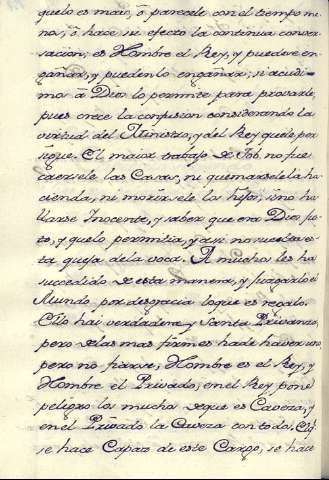 quelo es maio, ò parecele con el tiempo me
nos, ò hace su efecto la continua conver
sacion; es Hombre el Rey, y puede ve en
gañar, y pueden lo engañar; si acudi
mo à Dios lo permite para provarle,
pues crece la confusion considerando la
virtud del Ministro, y del Rey quele per
sigue. El maior trabajo de Job no fue
caersele las Casas, ni quemarsele la ha
cienda, ni morirsele los hijos, sino ha
llarse Inocente, y saber que era Dios
y quelo permitia, y
ta queja de la voca. A muchos les ha
succedido de esta manera, y juzgarlo el
Mundo por desgracia loque es regalo.
Sólo hai verdadera y Santa Privanza,
pero de las mas firmes ha de haver
pero no fiarse, Hombre es el Rey, y
Hombre el Privado; en el Rey pone
peligro lo mucho de que es Caveza, y
en el Privado la Caveza con todo. El q.
se hace Capaz de este Cargo, se hace